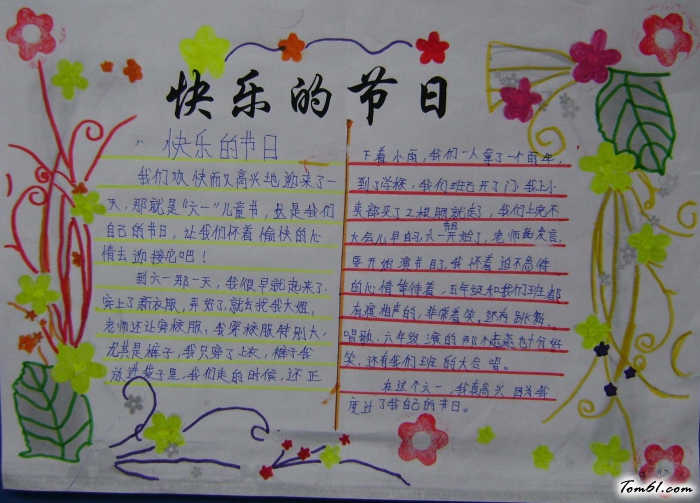 快乐的节日
快乐的节日
我们欢快而又高兴地迎来了一
天，那就是“六一”儿童节，这是我们
自己的节日，让我们怀着愉快的心
情去迎接它吧！
到六一那一天，我很早就起来了.
穿上了新衣服，就去找我大姐，
老师还让穿校服，我穿校服特别大，
尤其是裤子，我只穿了上衣，裤子我
放进袋子里，我们走的时候，还正
下着小雨，我们一人拿了一个雨伞，
到了学校，我们班已开了门，我上小
卖部买了工根豚就走了，我们上完不
大会儿早自习六一节目开始了，老师要发言，
要开始演节目了，我怀着迫不急待
的心情等待着，五年级和我们班都
有演相声的，非常看笑，还有跳舞、
唱歌、六年级演的那个也十分好
笑，还有我们班的大合唱。
在这个六一，我真高兴，因为我
度过了我自己的节日。
Tom61.com